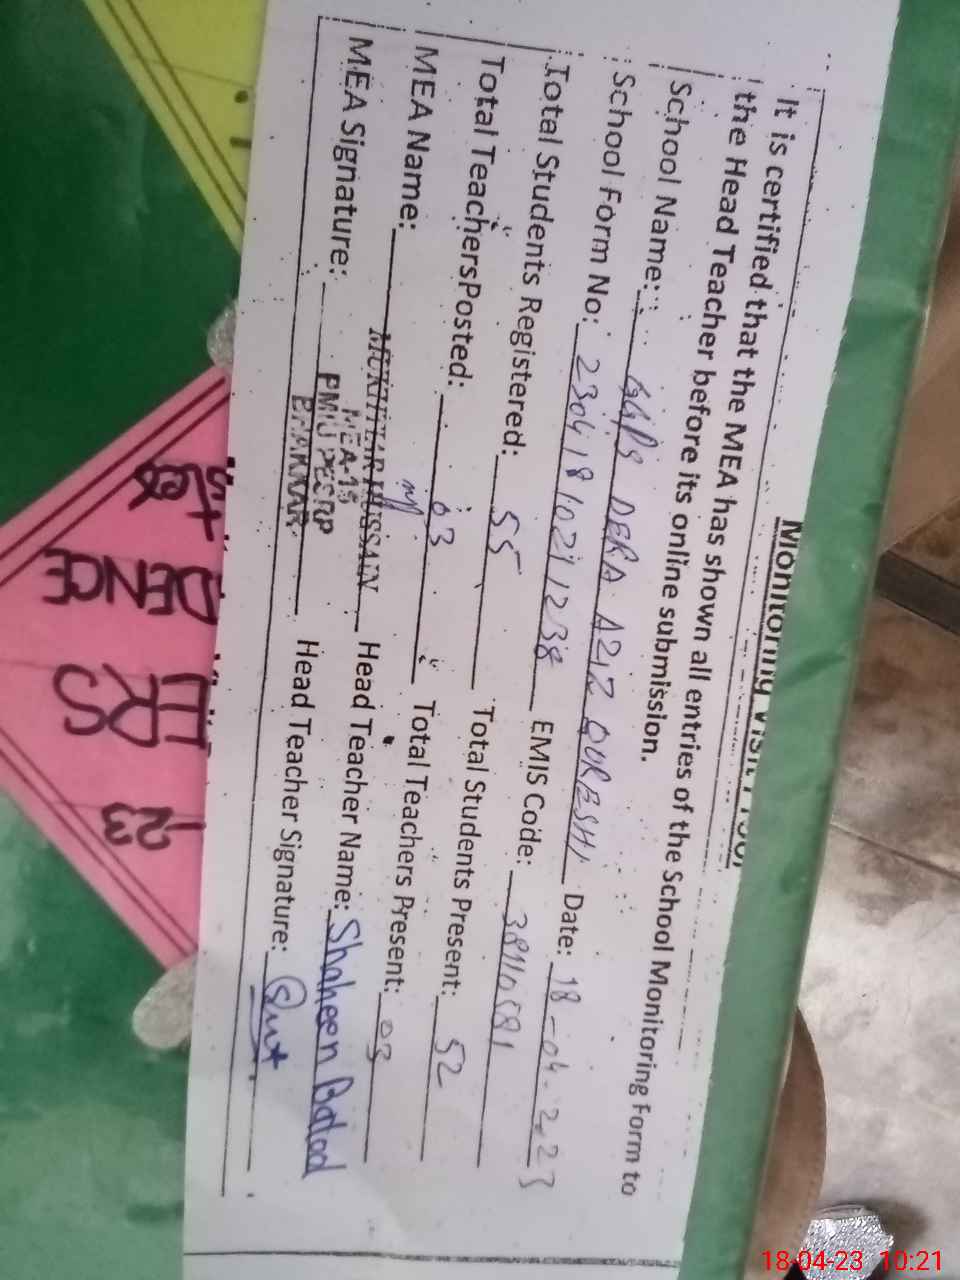 Monitoring Visit Proof
It is certified that the MEA has shown all entries of the School Monitoring Form to
the Head Teacher before its online submission.
School Name: GGPS DERA AZIZ QURESHI Date: 18-04-2023
School Form No: EMIS Code:
Total Students Registered: 55 Total Students Present: 52
Total TeachersPosted: 03 Total Teachers Present: 03
MEA Name: MUKHTIAR HUSSAIN Head Teacher Name: Shaheen Batool
MEA-15
MEA Signature: PMIU PESRP Head Teacher Signature:
BHAKKAR
DENCE
23
18-04-23 10:21